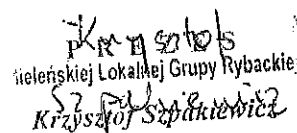 P R E Z E S
ieleńskiej Lokalnej Grupy Rybackie
Krzysztof Szpakiewicz